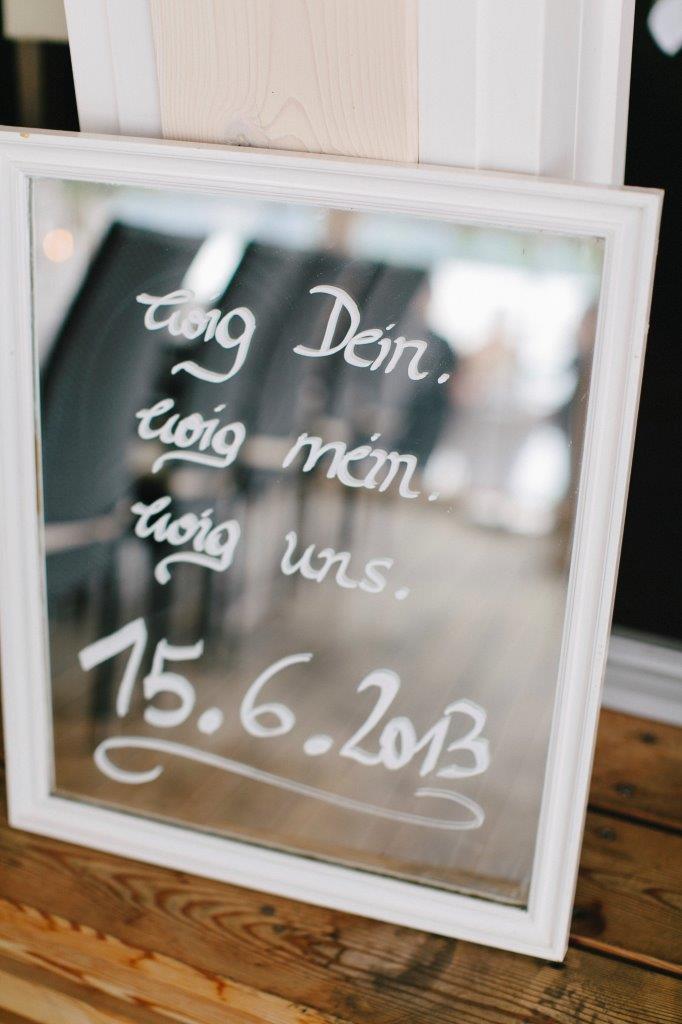 ewig Dein.
ewig mein.
ewig uns.
15.6.2013